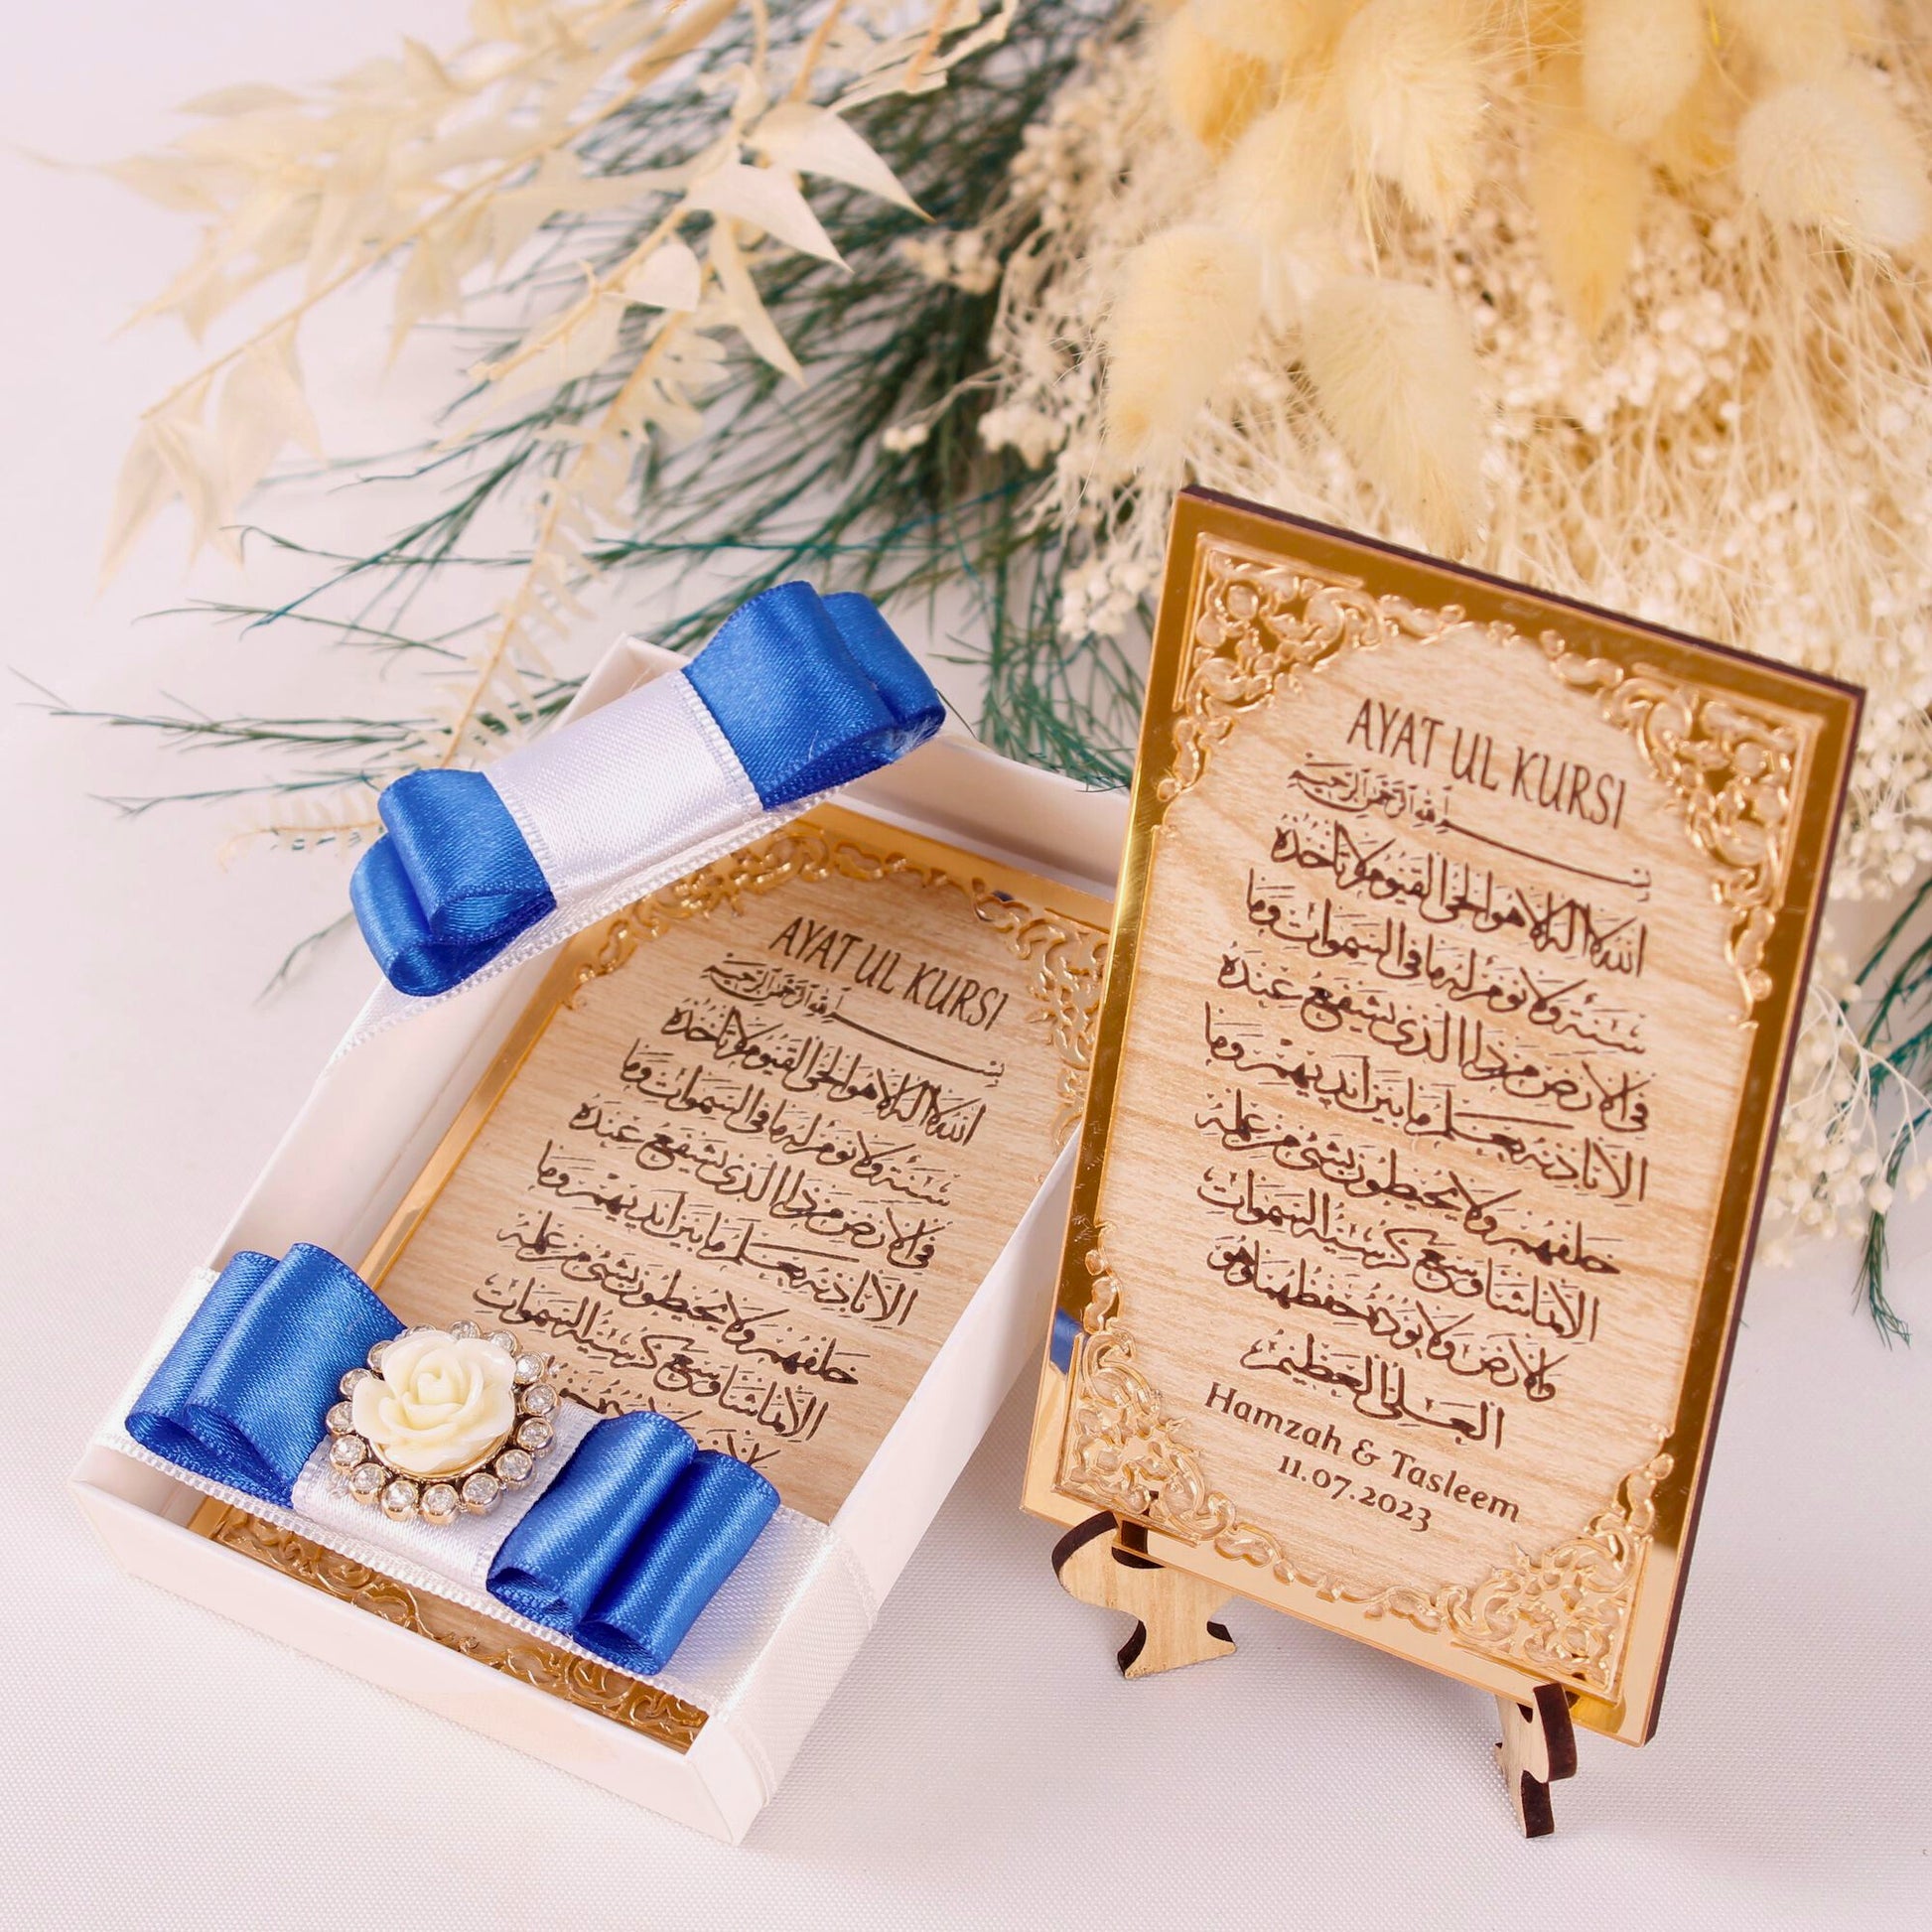 AYAT UL KURSI
بسم الله الرحمن الرحيم
الله لا إله إلا هو الحي القيوم لا تأخذه
سنة ولا نوم له ما في السموات وما
في الأرض من ذا الذي يشفع عنده
إلا بإذنه يعلم ما بين أيديهم وما
خلفهم ولا يحيطون بشيء من علمه
إلا بما شاء وسع كرسيه السموات
AYAT UL KURSI
بسم الله الرحمن الرحيم
الله لا إله إلا هو الحي القيوم لا تأخذه
سنة ولا نوم له ما في السموات وما
في الأرض من ذا الذي يشفع عنده
إلا بإذنه يعلم ما بين أيديهم وما
خلفهم ولا يحيطون بشيء من علمه
إلا بما شاء وسع كرسيه السموات
والأرض ولا يؤده حفظهما وهو
العلي العظيم
Hamzah & Tasleem
11.07.2023